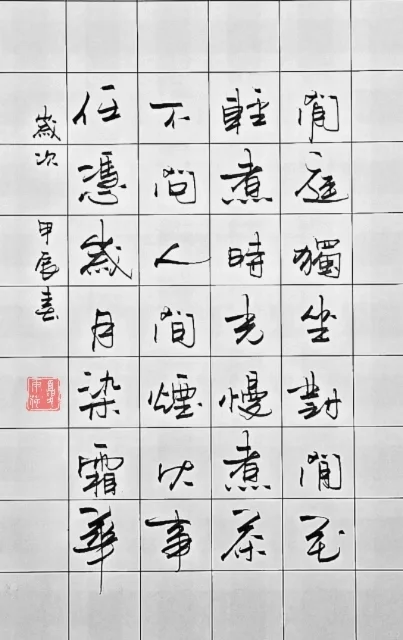 閒庭獨坐對閒花
輕煮時光慢煮茶
不問人間煙火事
任憑歲月染霜華
歲次 甲辰春